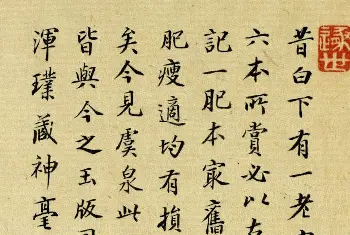 昔白下有一老
六本所賞必以
記一肥本最舊
肥瘦適均有損
矣今見虞泉此
皆與今之玉版
渾璞藏神毫